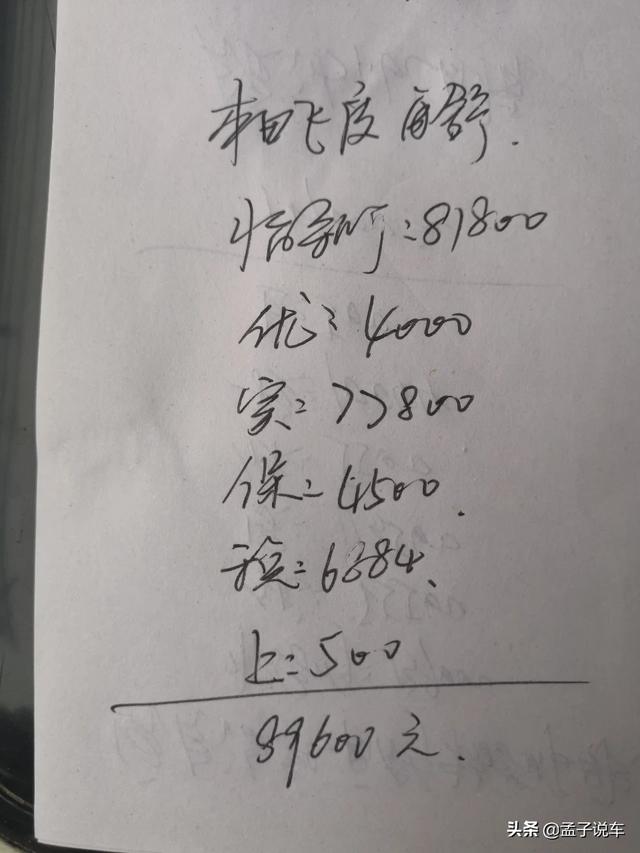 本田飞度 自舒.
指导价:81800
优:4000
实:77800
保:4500.
税:6384.
上:500
89600元.
头条 @孟子说车